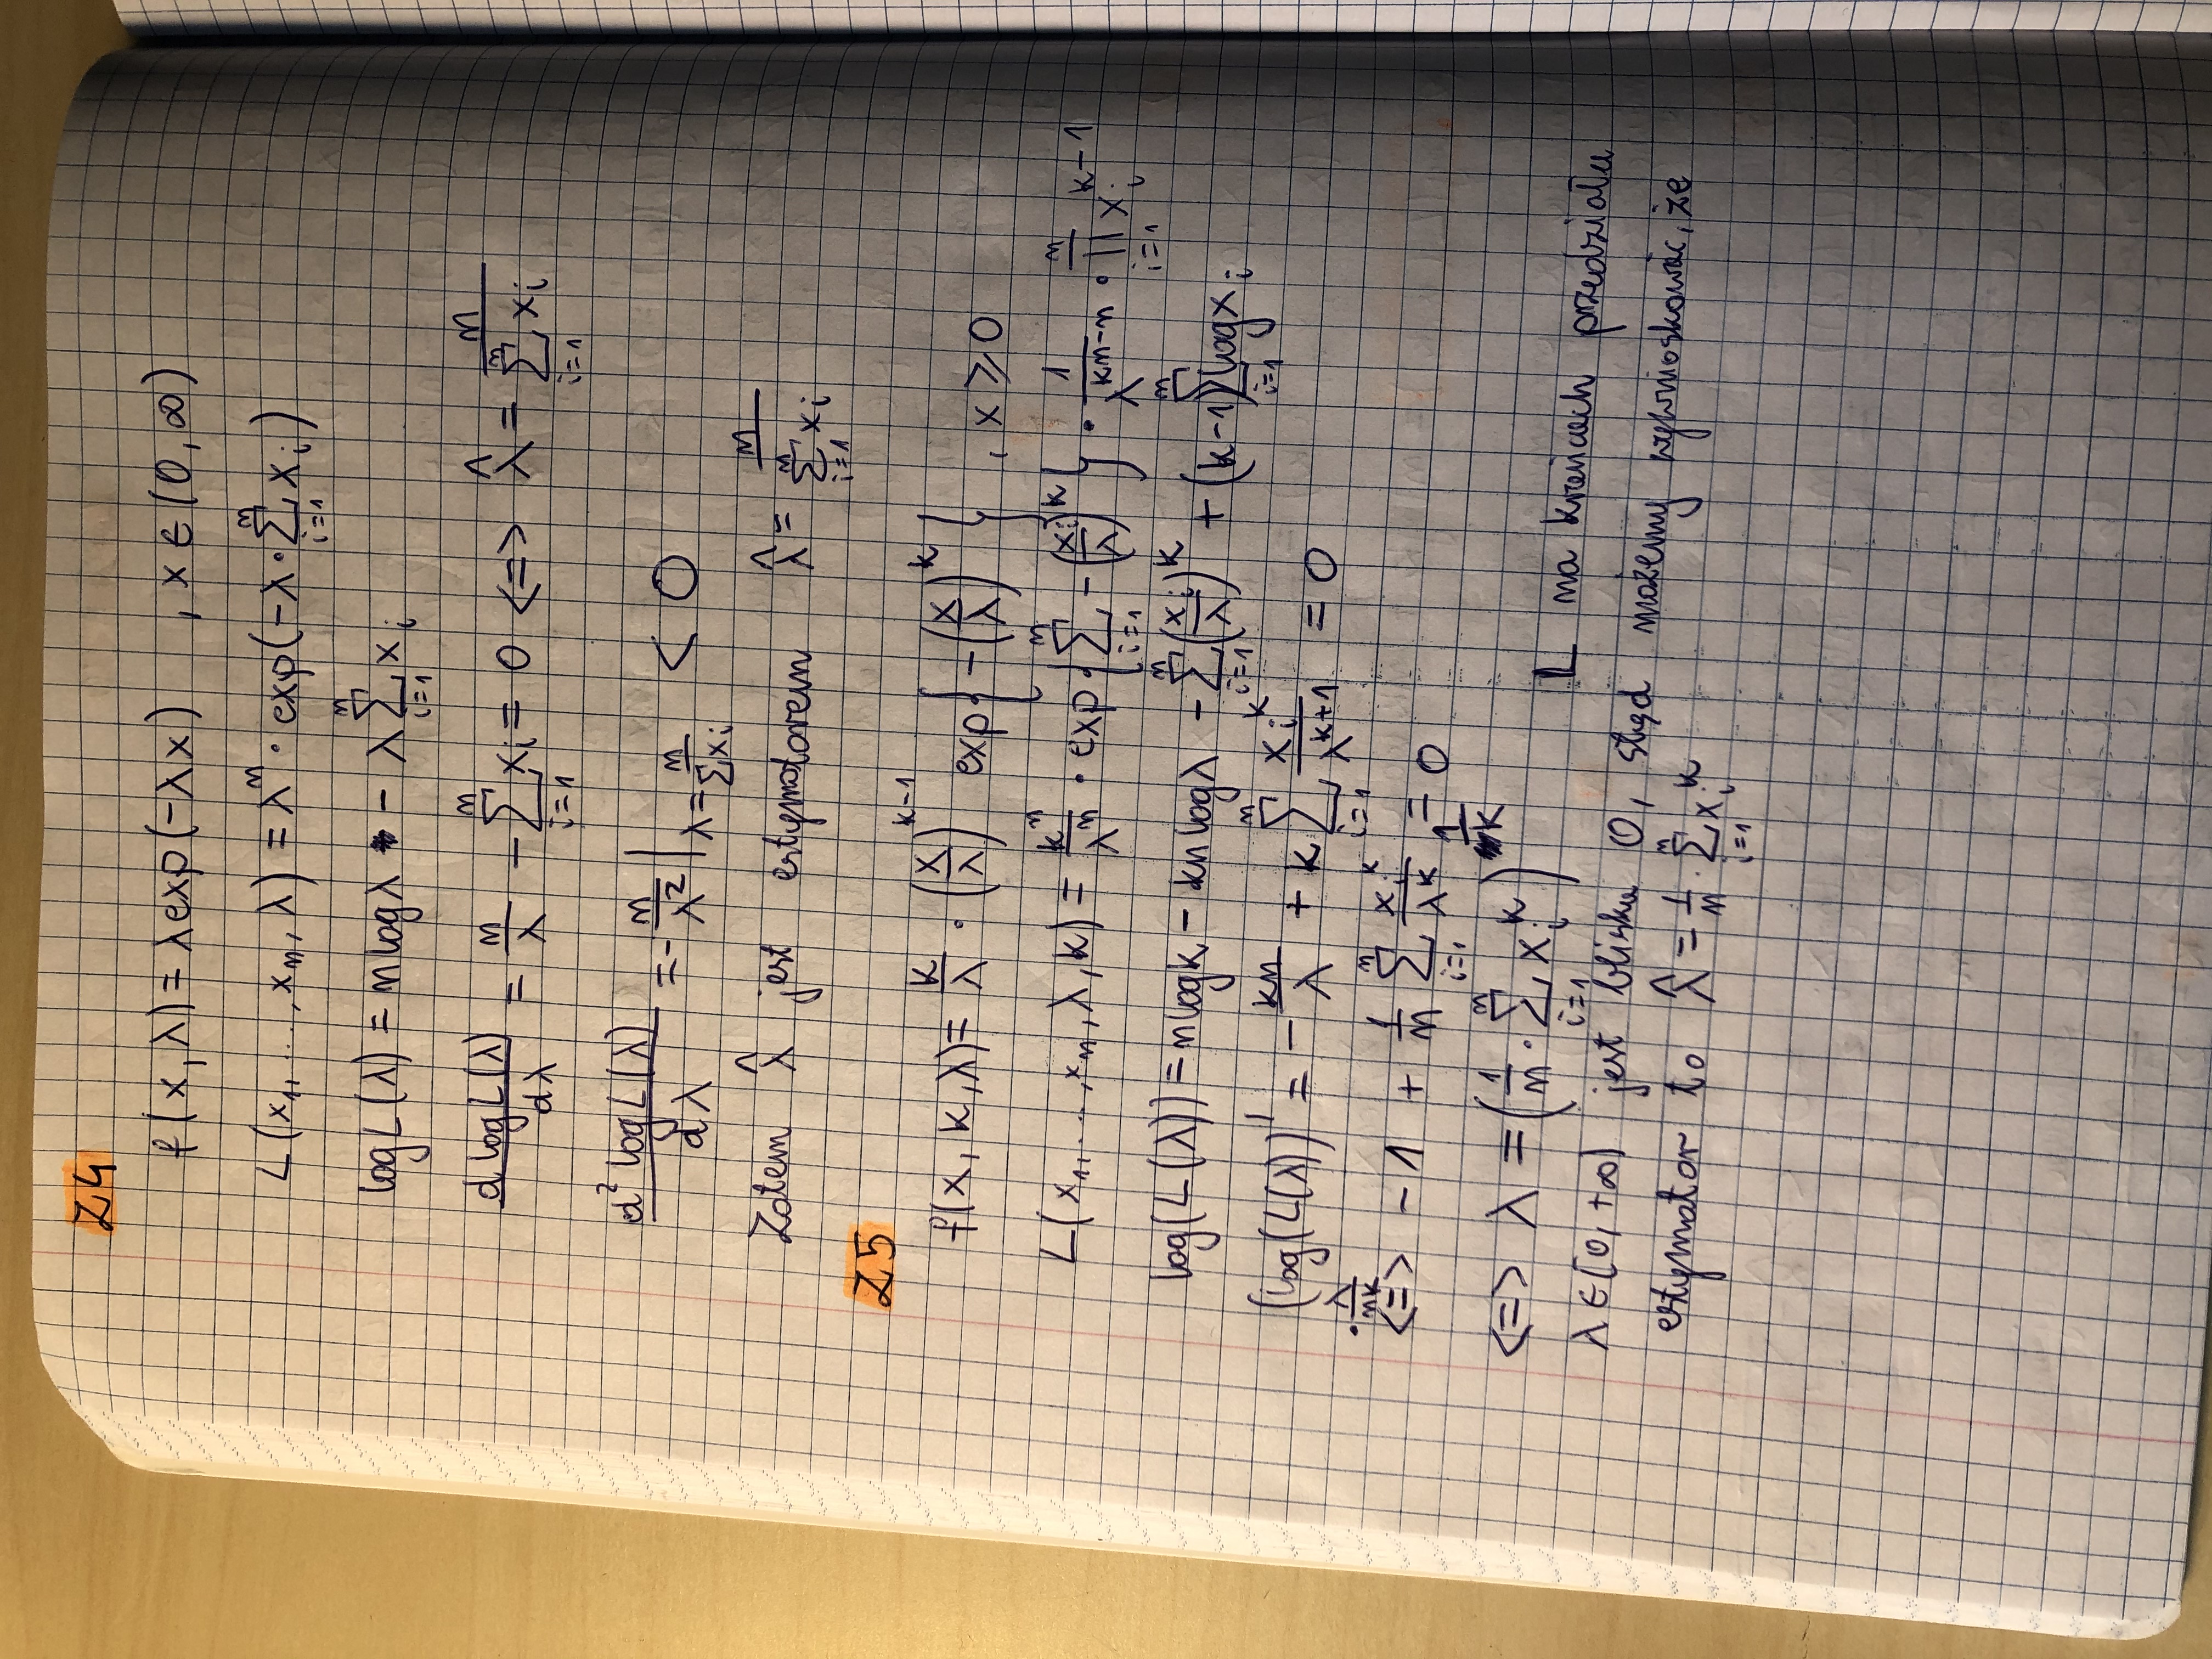 Z4
f(x, λ) = λ exp(-λx) , x ∈ (0, ∞)
L(x₁, ..., xₙ, λ) = λⁿ · exp(-λ · ∑ᵢ₌₁ⁿ xᵢ)
log L(λ) = n log λ - λ ∑ᵢ₌₁ⁿ xᵢ
d log L(λ) / dλ = n/λ - ∑ᵢ₌₁ⁿ xᵢ = 0 <=> λ̂ = n / ∑ᵢ₌₁ⁿ xᵢ
d² log L(λ) / dλ = - n/λ² |_{λ = n/∑xᵢ} < 0
Zatem λ̂ jest estymatorem λ̂ = n / ∑ᵢ₌₁ⁿ xᵢ
Z5
f(x, k, λ) = k/λ · (x/λ)^{k-1} exp{-(x/λ)^k} , x ⩾ 0
L(x₁, ..., xₙ, λ, k) = kⁿ/λⁿ · exp{∑ᵢ₌₁ⁿ -(xᵢ/λ)^k} · 1/λ^{kn-n} · ∏ᵢ₌₁ⁿ xᵢ^{k-1}
log(L(λ)) = n log k - kn log λ - ∑ᵢ₌₁ⁿ (xᵢ/λ)^k + (k-1) ∑ᵢ₌₁ⁿ log xᵢ
(log(L(λ))' = - kn/λ + k ∑ᵢ₌₁ⁿ xᵢ^k / λ^{k+1} = 0
· λ/nk
<=> -1 + 1/n ∑ᵢ₌₁ⁿ xᵢ^k / λ^k = 0
<=> λ = (1/n · ∑ᵢ₌₁ⁿ xᵢ^k)^{1/k}
L na krańcach przedziału
λ ∈ [0, +∞) jest bliska 0, stąd możemy wywnioskować, że
estymator to λ̂ = 1/n · ∑ᵢ₌₁ⁿ xᵢ^k